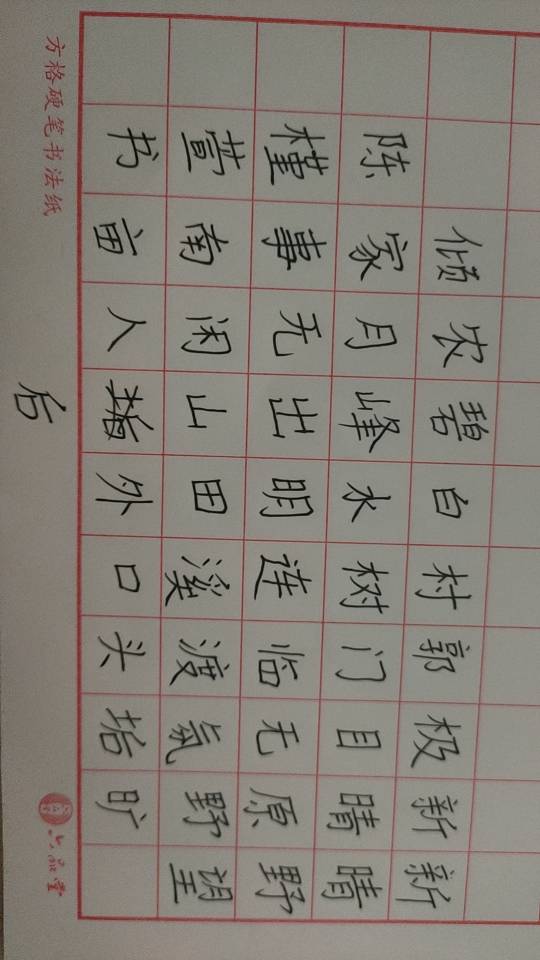 新晴野望
新晴原野旷
极目无氛垢
郭门临渡头
村树连溪口
白水明田外
碧峰出山后
农月无闲人
倾家事南亩
陈槿萱书
方格硬笔书法纸
六品堂